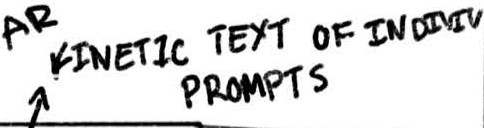 AR
KINETIC TEXT OF INDIVIV
PROMPTS